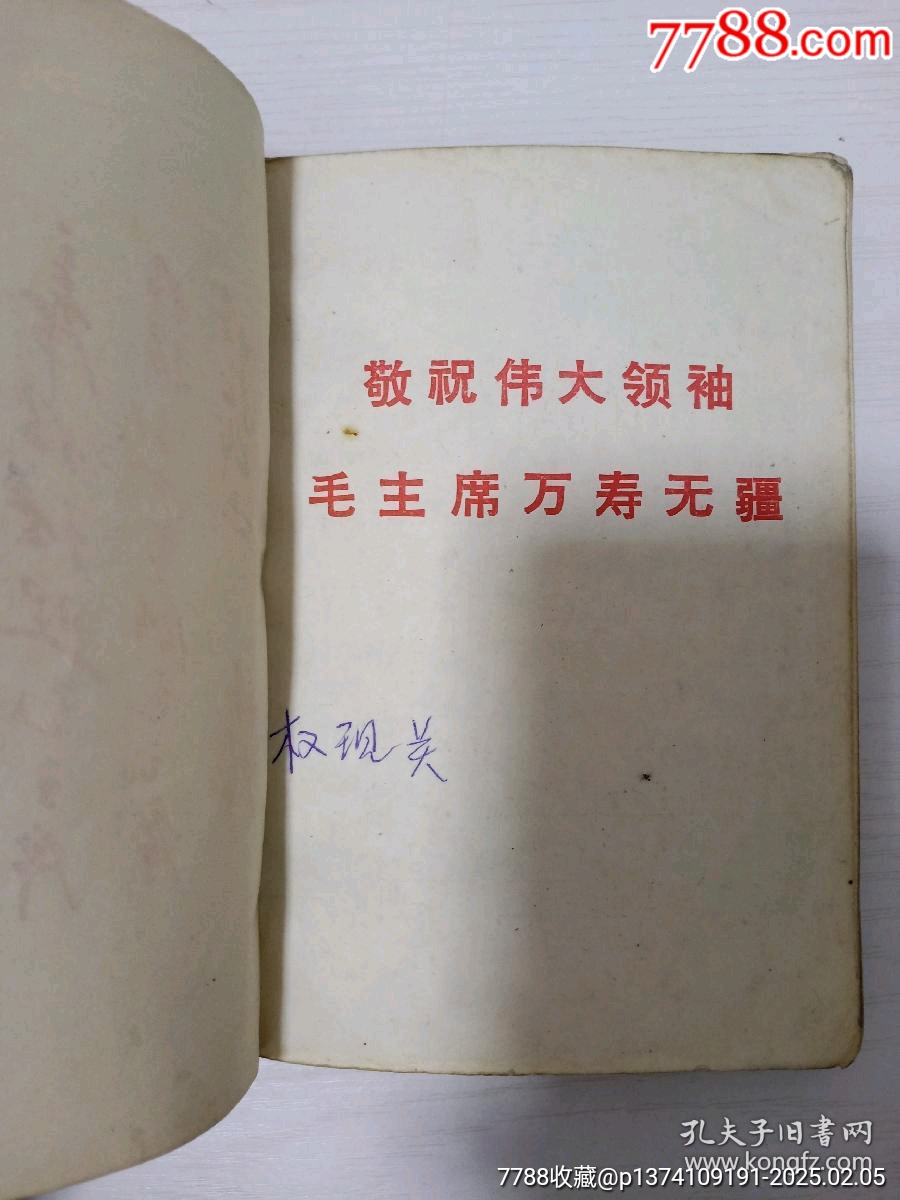 7788.com
敬祝伟大领袖
毛主席万寿无疆
权现关
孔夫子旧书网
www.kongfz.com
7788收藏@p1374109191-2025.02.05